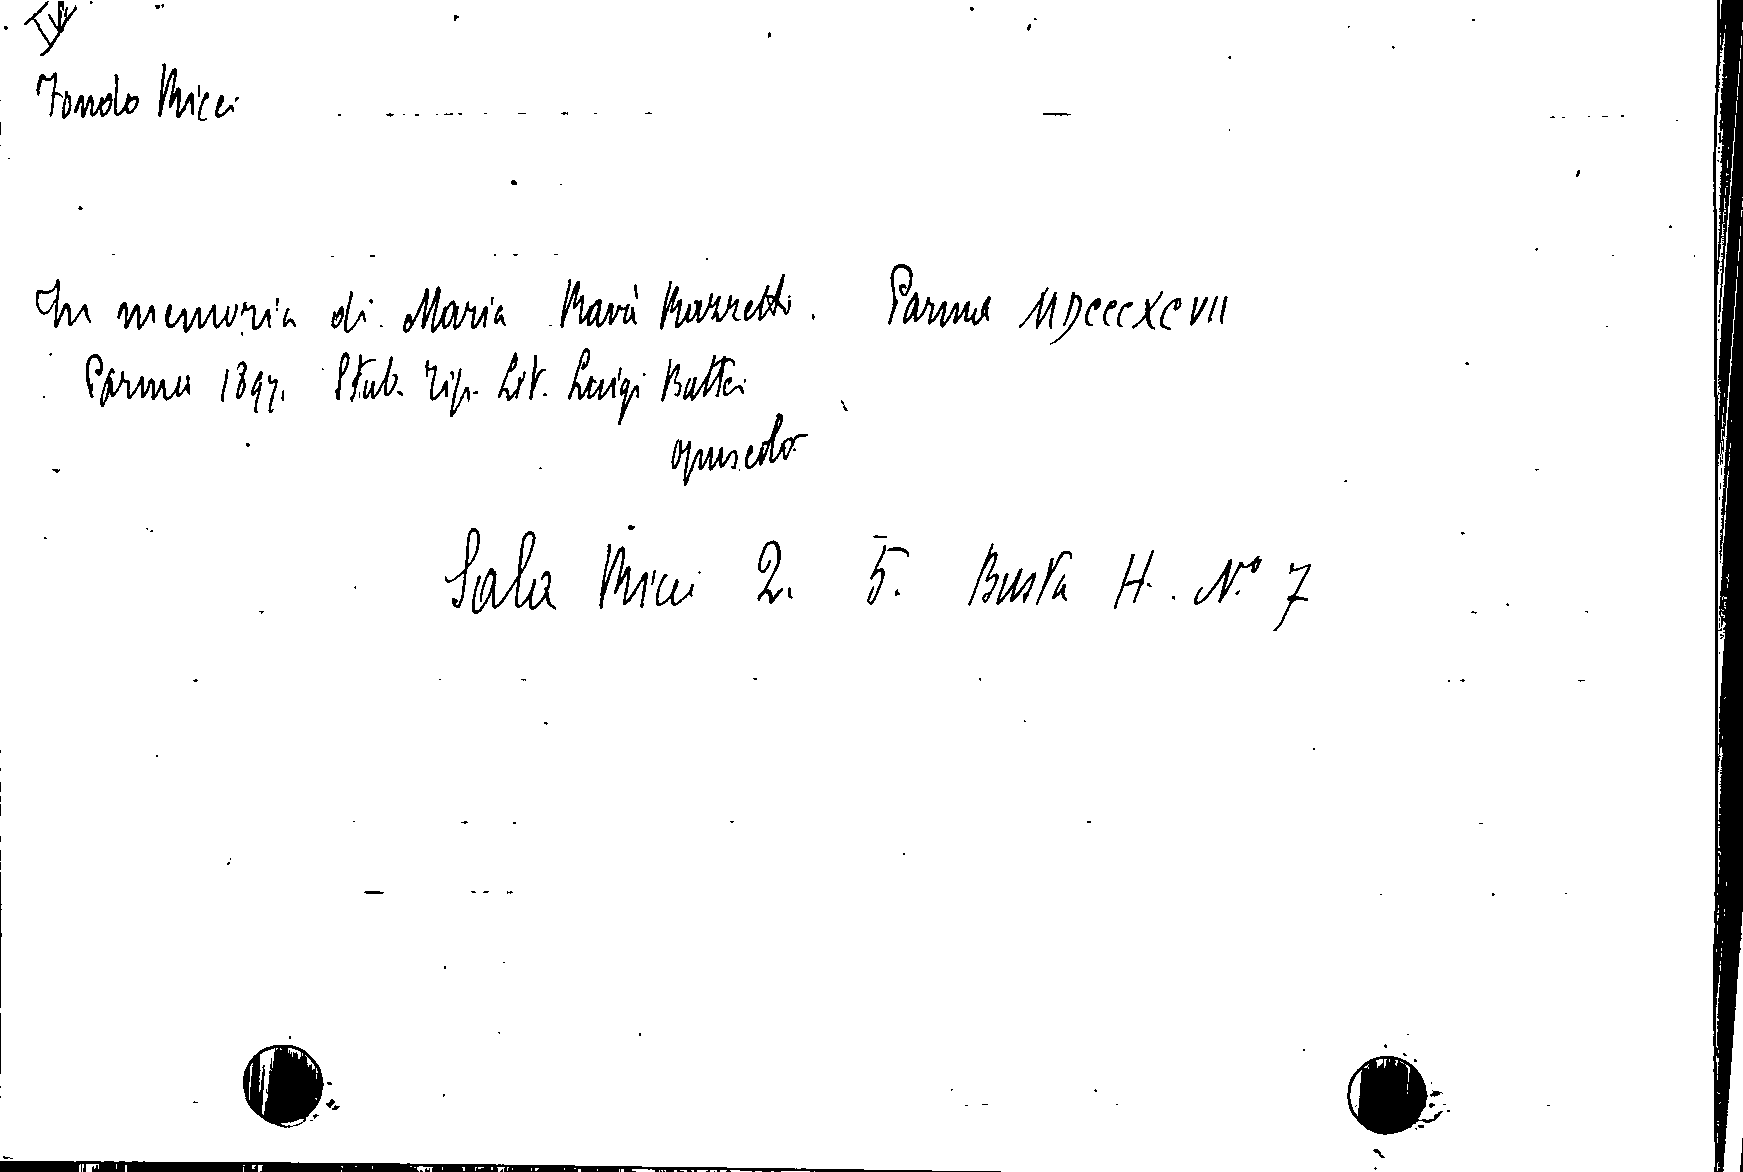 Fondo Ricci
In memoria di Maria Ravà Parma MDCCCXCVII
Parma 1897. Stab. Tip. Lit. Luigi Battei
opuscolo
Sala Ricci 2. 5. Busta H. Nº 7